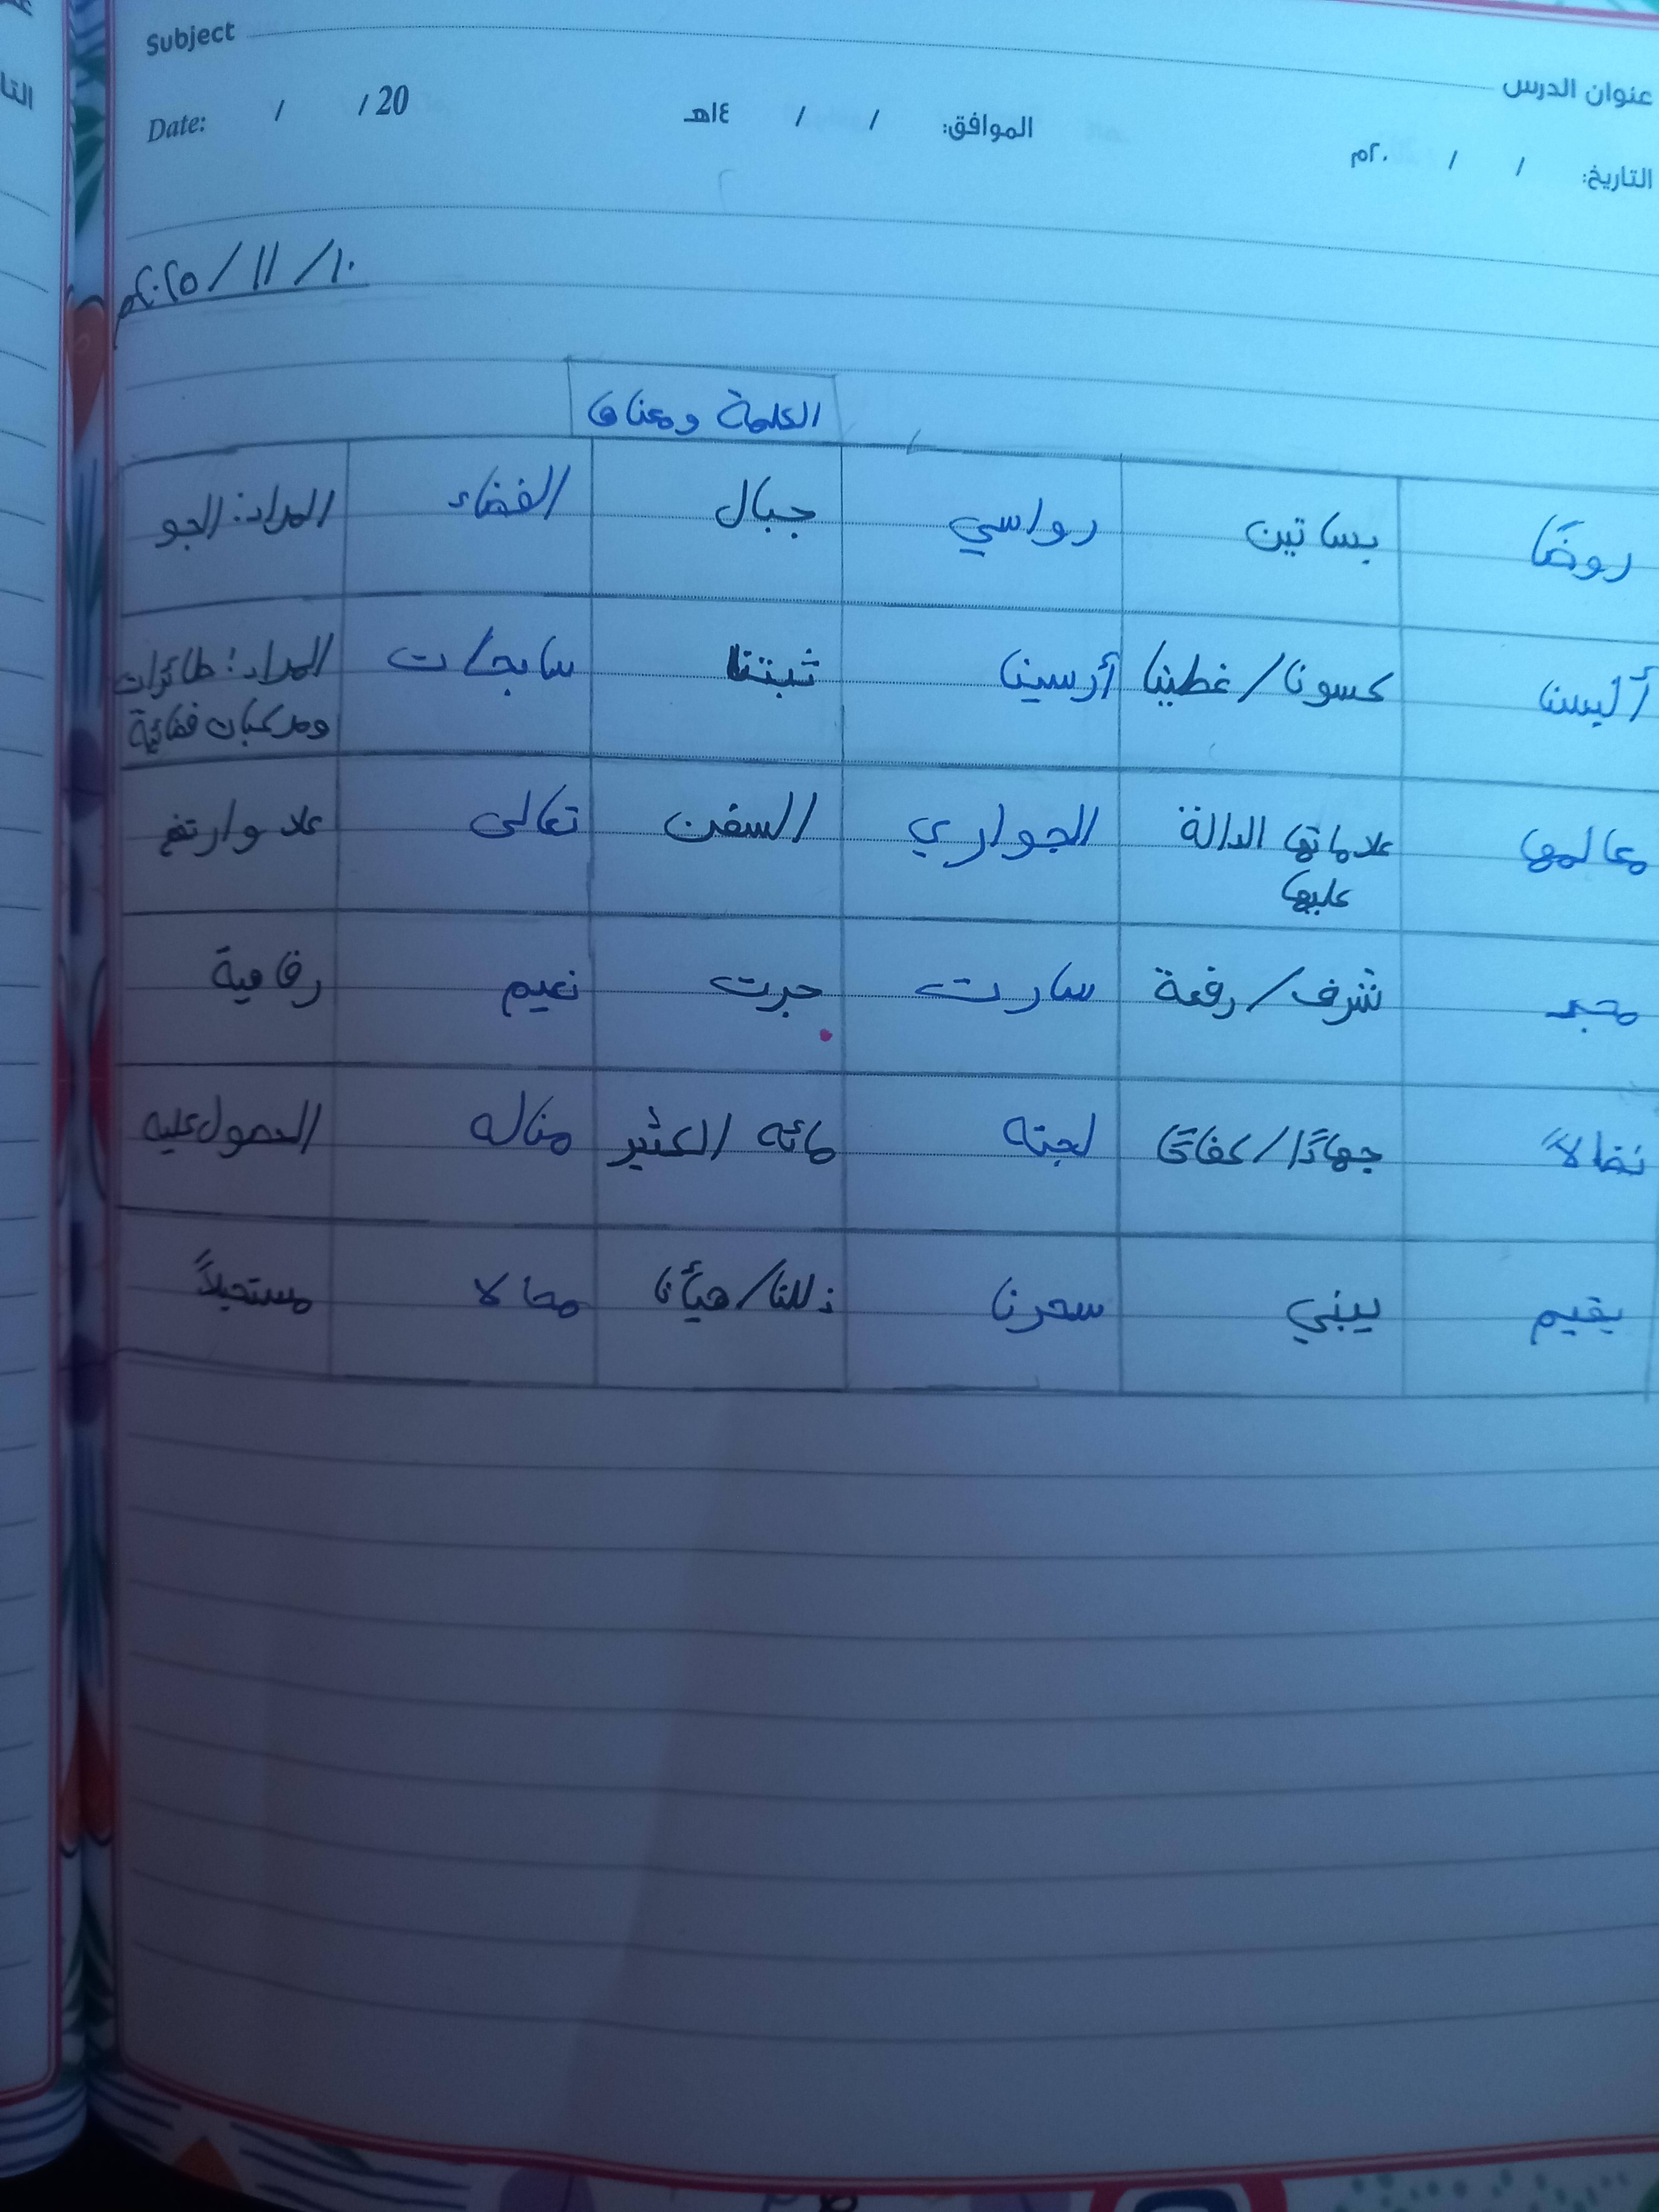 Subject
عنوان الدرس
Date: / / 20
الموافق: / / ١٤هـ
التاريخ: / / ٢٠م
١٠/ ١١ / ٢٠٢٥م
الكلمة ومعناها
روضًا بساتين رواسي جبال الفضاء المراد: الجو
ألبسنا كسونا/غطينا أرسينا ثبتنا سابحات المراد: طائرات
ومركبات فضائية
معالمها علاماتها الدالة الجواري السفن تعالى علا وارتفع
عليها
مجد شرف/رفعة سارت جرت نعيم رفاهية
نضالاً جهادًا/كفاحًا لجته مائه الكثير مناله الحصول عليه
يقيم يبني سحرنا ذللنا/هيأنا محالا مستحيلاً
التا